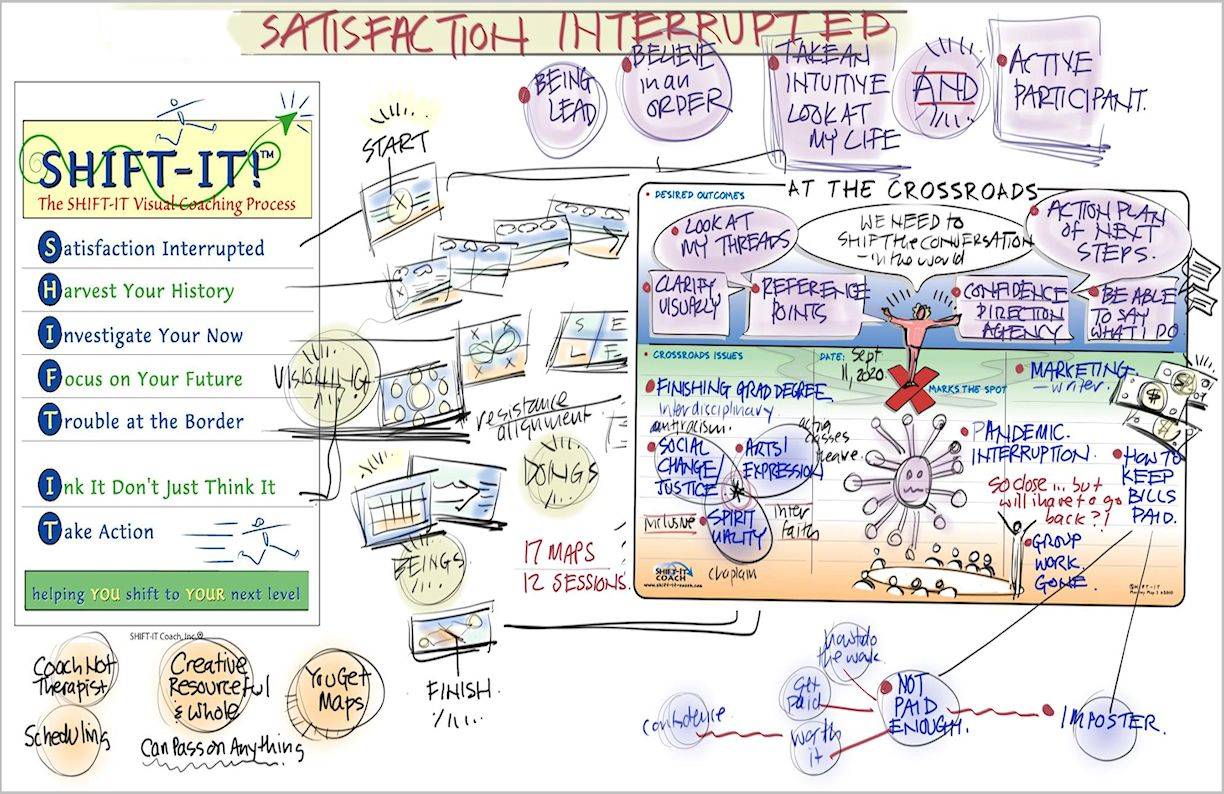 SATISFACTION INTERRUPTED
BEING
LEAD
BELIEVE
in an
ORDER
TAKE AN
INTUITIVE
LOOK AT
MY LIFE
AND
ACTIVE
PARTICIPANT.
SHIFT-IT!™
The SHIFT-IT Visual Coaching Process
Satisfaction Interrupted
Harvest Your History
Investigate Your Now
Focus on Your Future
Trouble at the Border
Ink It Don't Just Think It
Take Action
helping YOU shift to YOUR next level
SHIFT-IT Coach, Inc.®
START
VISIONING
resistance
alignment
DOINGS
BEINGS
17 MAPS
12 SESSIONS.
FINISH.
S E
L F
AT THE CROSSROADS
DESIRED OUTCOMES
LOOK AT
MY THREADS
WE NEED TO
SHIFT the CONVERSATION
- in the world
ACTION PLAN
OF NEXT
STEPS.
CLARIFY
VISUALLY
REFERENCE
POINTS
CONFIDENCE
DIRECTION
AGENCY
BE ABLE
TO SAY
WHAT I DO
CROSSROADS ISSUES
DATE: Sept
11, 2020
MARKS THE SPOT
FINISHING GRAD DEGREE
Interdisciplinary
antiracism.
SOCIAL
CHANGE/
JUSTICE
ARTS/
EXPRESSION
acting
classes
SPIRIT
UALITY
inclusive
inter
faith
chaplain
MARKETING
- writer.
PANDEMIC.
INTERRUPTION.
SO close... but
will i have to go
back?!
GROUP
WORK
GONE.
HOW TO
KEEP
BILLS
PAID.
SHIFT-IT
COACH
www.shift-it-coach.com
©SHIFT-IT
how to do
the work.
Get
Paid
confidence.
worth
it
NOT
PAID
ENOUGH.
IMPOSTER.
Coach Not
Therapist
Creative
Resourceful
& Whole
You Get
Maps
Scheduling
Can Pass on Anything